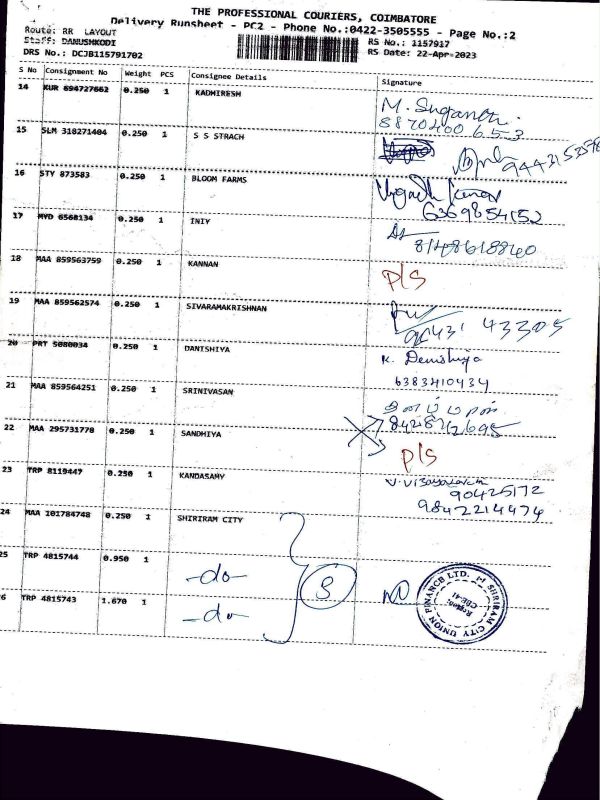 THE PROFESSIONAL COURIERS, COIMBATORE
Delivery Runsheet - PC2 - Phone No.:0422-3505555 - Page No.:2
Route: RR LAYOUT
Staff: DANUSHKODI
RS No.: 1157917
DRS No.: DCJB115791702
RS Date: 22-Apr-2023
S No Consignment No Weight PCS Consignee Details Signature
14 KUR 694727662 0.250 1 KADHIRESH M. Suganthi
8870400653
15 SLM 318271404 0.250 1 S S STRACH
16 STY 873583 0.250 1 BLOOM FARMS Kumar
6369854152
17 MYD 6568134 0.250 1 INIY
8148618840
18 MAA 859563759 0.250 1 KANNAN P/S
19 MAA 859562574 0.250 1 SIVARAMAKRISHNAN
90431 43305
20 PRT 5080034 0.250 1 DANISHIYA K. Danishiya
6383410434
21 MAA 859564251 0.250 1 SRINIVASAN
8428712695
22 MAA 295731770 0.250 1 SANDHIYA P/S
23 TRP 8119447 0.250 1 KANDASAMY
90425172
9842214474
24 MAA 101784748 0.250 1 SHRIRIAM CITY
25 TRP 4815744 0.950 1 -do-
6 TRP 4815743 1.670 1 -do-
SHRIRAM CITY UNION FINANCE LTD.